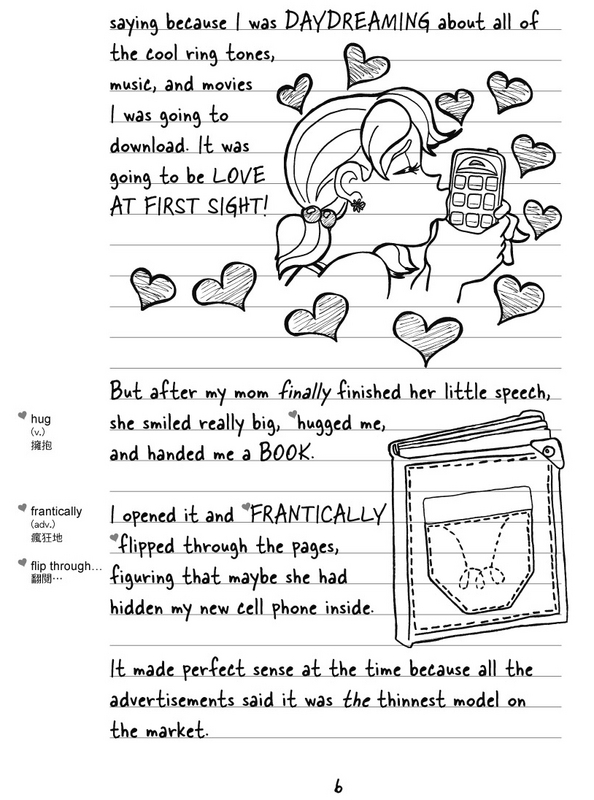 saying because I was DAYDREAMING about all of
the cool ring tones,
music, and movies
I was going to
download. It was
going to be LOVE
AT FIRST SIGHT!
But after my mom finally finished her little speech,
she smiled really big, hugged me,
and handed me a BOOK.
hug
(v.)
擁抱
I opened it and FRANTICALLY
flipped through the pages,
figuring that maybe she had
hidden my new cell phone inside.
frantically
(adv.)
瘋狂地
flip through…
翻閱…
It made perfect sense at the time because all the
advertisements said it was the thinnest model on
the market.
6